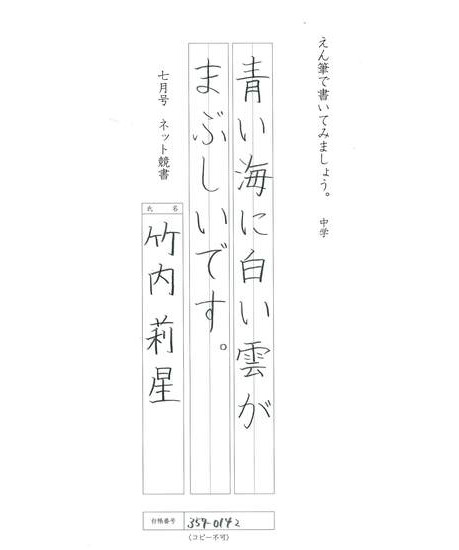 えん筆で書いてみましょう。 中学
青い海に白い雲が
まぶしいです。
七月号 ネット競書
氏名
竹内莉星
台帳番号 359-0142
(コピー不可)